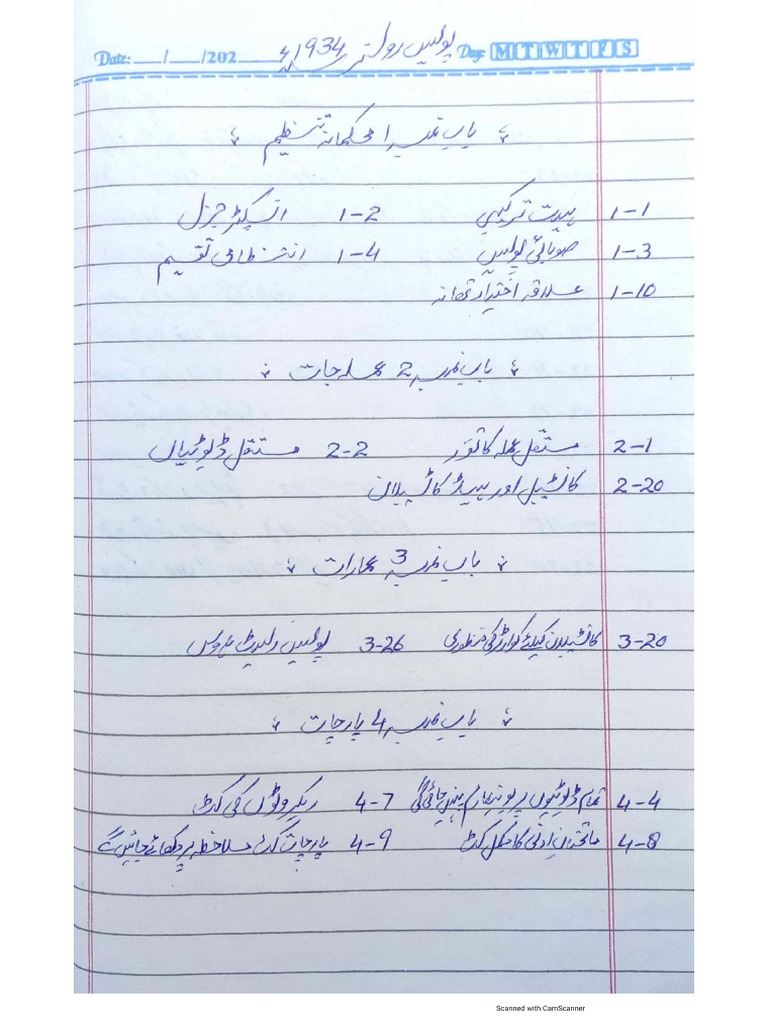 Date: __/__/202__ پولیس رولز 1934ء Day: M T W T F S
باب نمبر 1 محکمانہ تنظیم
1-1 ہیئت ترکیبی 1-2 انسپکٹر جنرل
1-3 صوبائی پولیس 1-4 انتظامی تقسیم
1-10 علاقہ اختیار تھانہ
باب نمبر 2 عملہ جات
2-1 مستقل عملہ کا تقرر 2-2 مستقل ڈیوٹیاں
2-20 کانسٹیبل اور ہیڈ کانسٹیبلان
باب نمبر 3 عمارات
3-20 کانسٹیبلان کیلئے کوارٹر کی منظوری 3-26 پولیس
باب نمبر 4 پارچات
4-4 تمام ڈیوٹیوں پر یونیفارم پہنی جائے گی 4-7 ریکروٹوں کی کٹ
4-8 ماتحتان ادنیٰ کا مکمل کٹ 4-9 پارچات کٹ ملاحظہ پر دکھائے جائیں گے
Scanned with CamScanner